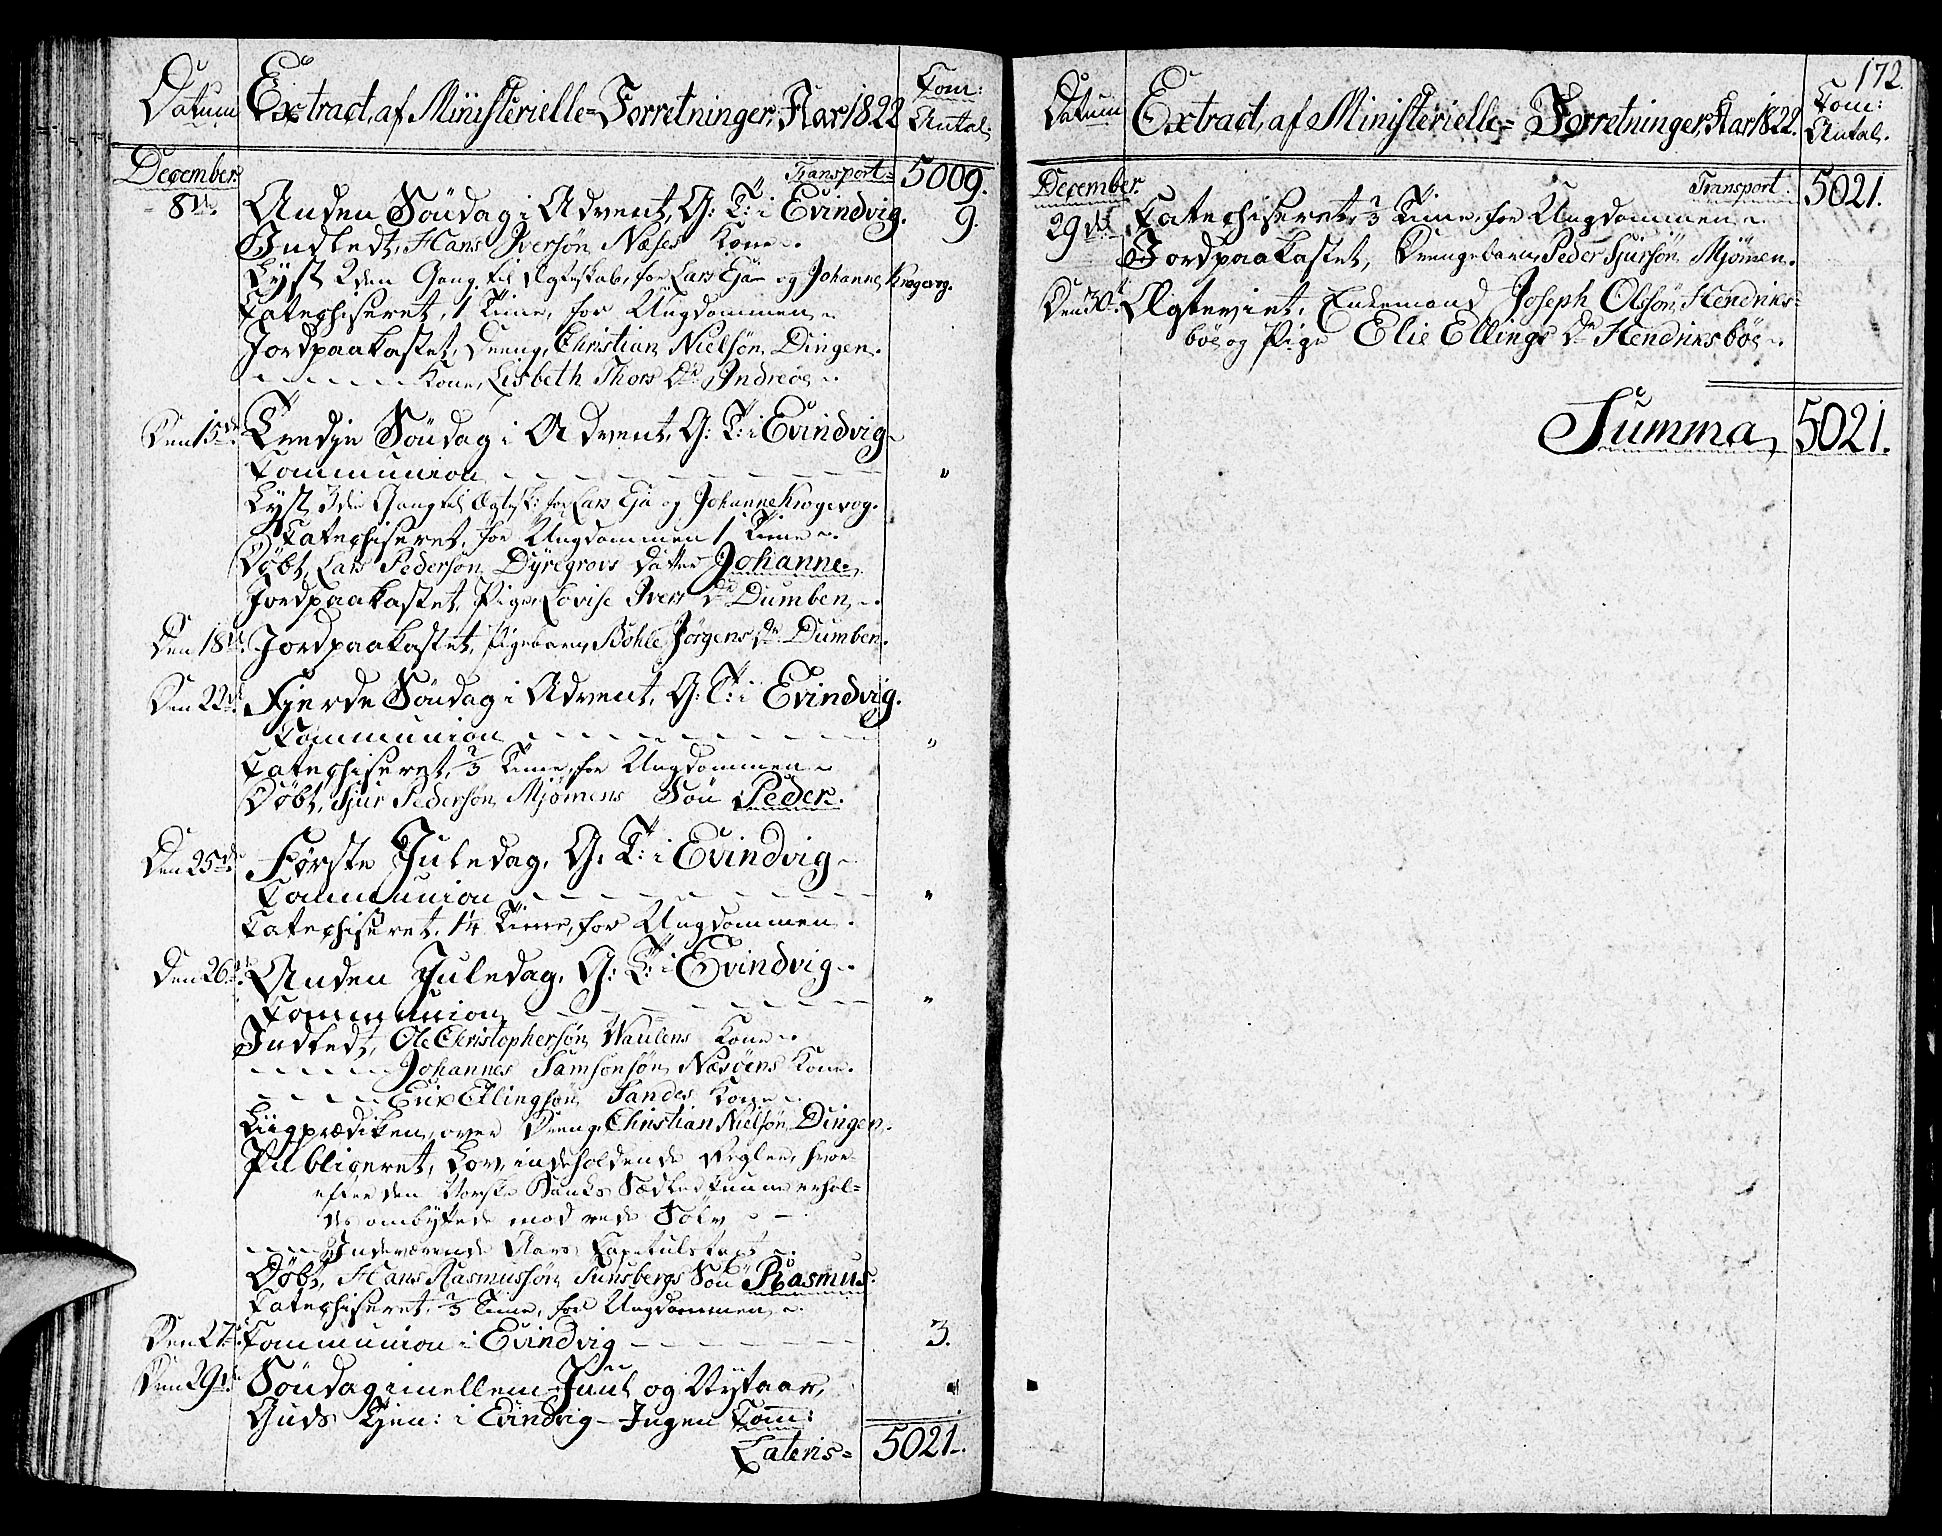 Datum Extract, af Miinisterielle=Forretninger, Aar 1822 Com: Antal.
December. Transport= 5009.
8de Anden Söndag i Advent, G: T: i Evindvig. 9.
Indledt, Hans Iversøn Næses Kone.
Lyst 2den Gang til Ægteskab, for Lars Eja og Johanne Krogevog.
Catechiseret, 1 Time, for Ungdommen.
Jordpaakastet, Dreng, Christian Nielsøn Dingen.
Kone, Lisbeth Thors Dr Indreøe
Den 15de Tredje Söndag i Advent, G: T: i Evindvig
Communion "
Lyst 3die Gang til Ægtesk: for Lars Eja og Johanne Krogevog.
Catechiseret, for Ungdommen 1 Time
Døbt, Lars Pedersøn Dyregrovs Datter Johanne.
Jordpaakastet, Pige, Lovise Ivers Dr Dumben,
Den 18de Jordpaakastet, Pigebarn, Bohle Jörgens Dr Dumben.
Den 22de Fjerde Söndag i Advent, G: T: i Evindvig.
Communion "
Catechiseret, 2/3 Time, for Ungdommen
Døbt, Sjur Pedersøn Mjömens Søn Peder.
Den 25de Første Juledag, G. T: i Evindvig
Communion "
Catechiseret, 1/4 Time, for Ungdommen.
Den 26de Anden Juledag, G: T: i Evindvig
Communion "
Indledt, Ole Christophersøn Waulens Kone
Johannes Samsonsøn Næsöens Kone.
Eric Ellingsøn Sandes Kone
Liigprædiken, over Dreng Christian Nielsøn Dingen.
Publiceret, Lov, indeholdende Regler, hvor-
efter den Norske Banks Sedler kunne erhol-
des ombyttede mod rede Sölv
Indeværende Aars Capitulstaxt
Døbt, Hans Rasmussøn Sunsbergs Søn Rasmus.
Catechiseret, 2/3 Time, for Ungdommen
Den 27de Communion i Evindvig 3.
Den 29de Söndag imellem Juul og Nytaar,
Guds Tjen: i Evindvig - Ingen Com:
Lateris= 5021.
172.
Datum Extract, af Ministerielle= Forretninger, Aar 1822. Com: Antal.
December. Transport. 5021.
29de Catechiseret, 2/3 Time, for Ungdommen
Jordpaakastet, Drengebarn, Peder Sjursøn Mjömen.
Den 30te Ægteviet, Enkemand Joseph Olssøn Hendriks-
böe og Pige Elie Ellings Dr Hendriksböe
Summa, 5021.